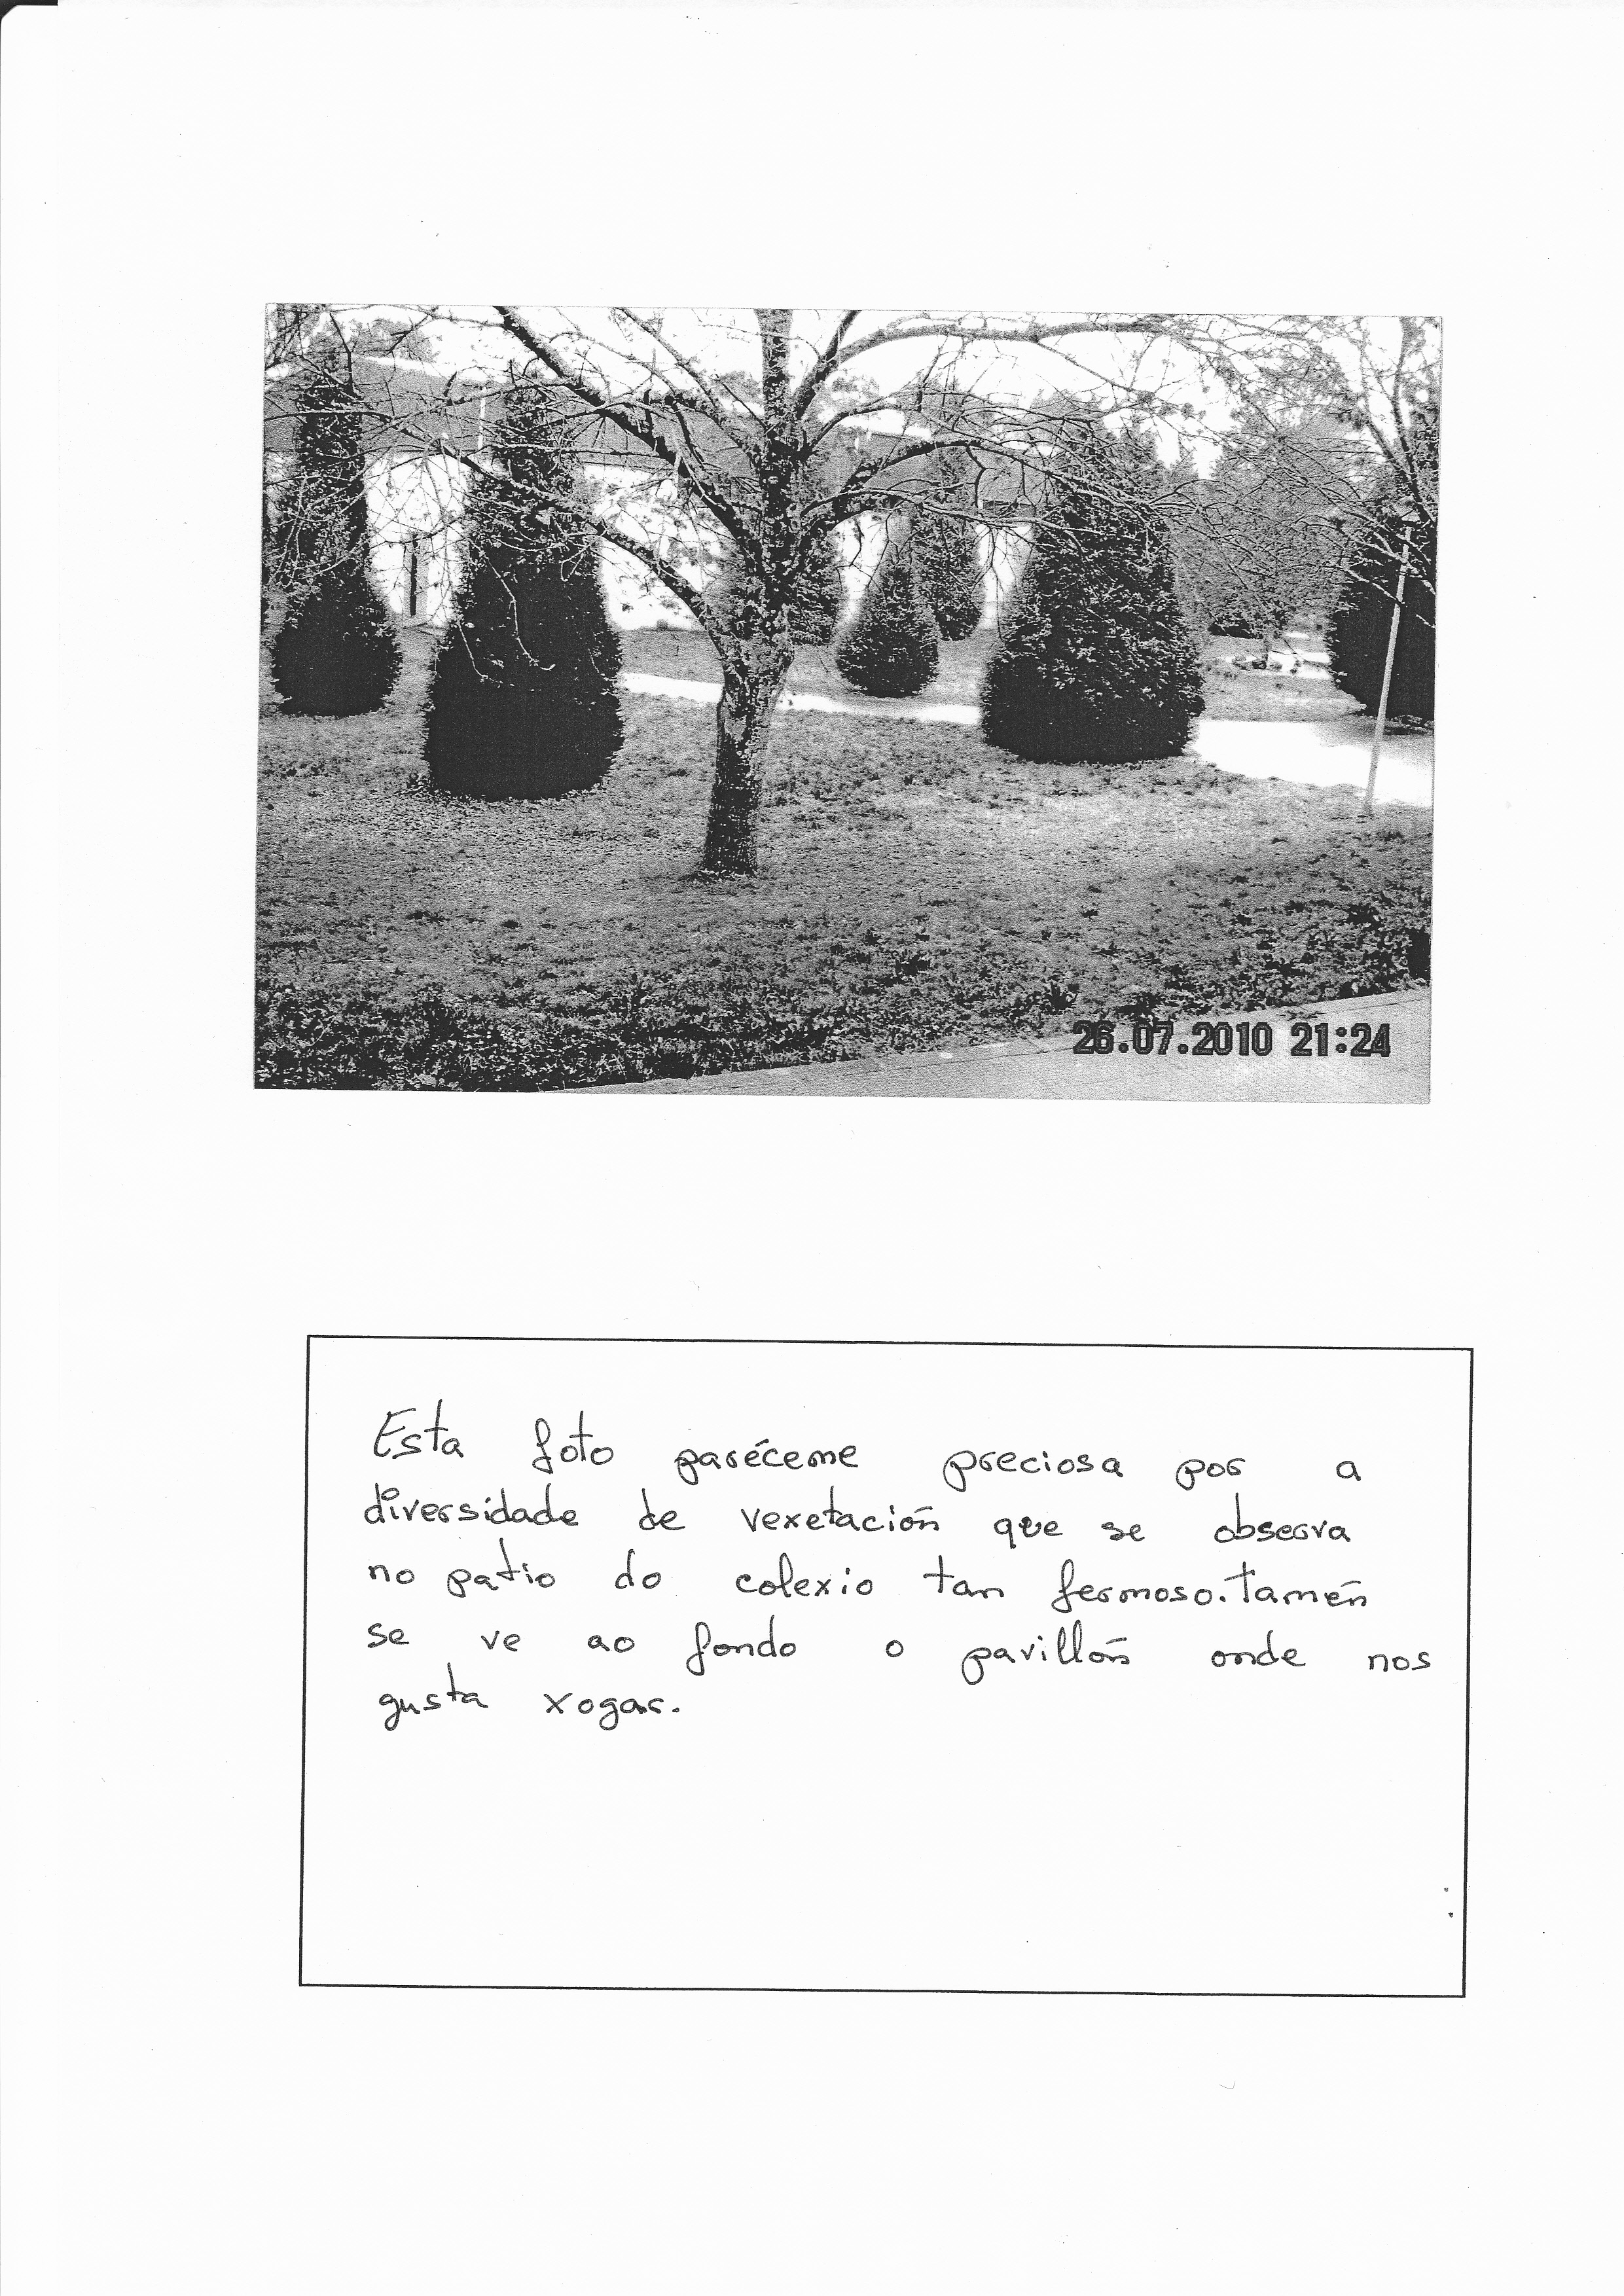 26.07.2010 21:24
Esta foto paréceme preciosa por a
diversidade de vexetación que se observa
no patio do colexio tan fermoso. Tamén
se ve ao fondo o pavillón onde nos
gusta xogar.